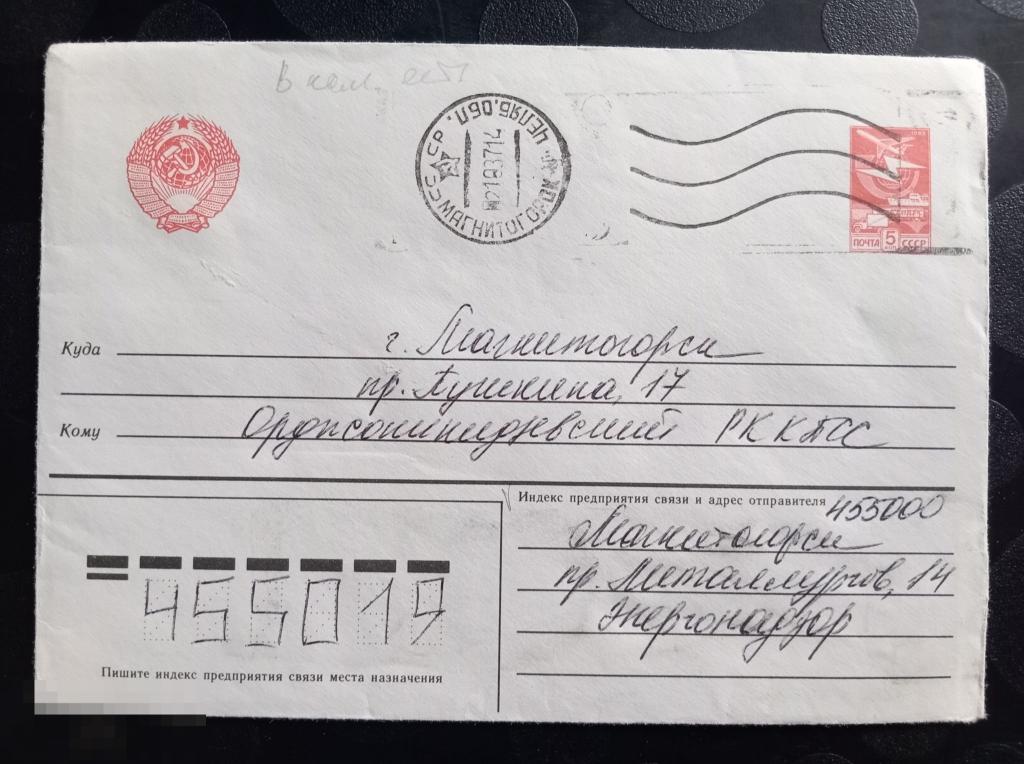 СССР ЧЕЛЯБ. ОБЛ.
МАГНИТОГОРСК
ПОЧТА 5 СССР
Куда г. Магнитогорск
пр. Пушкина, 17
Кому Орджоникидзевский РК КПСС
Индекс предприятия связи и адрес отправителя 455000
Магнитогорск
пр. Металлургов, 14
Энергонадзор
455019
Пишите индекс предприятия связи места назначения